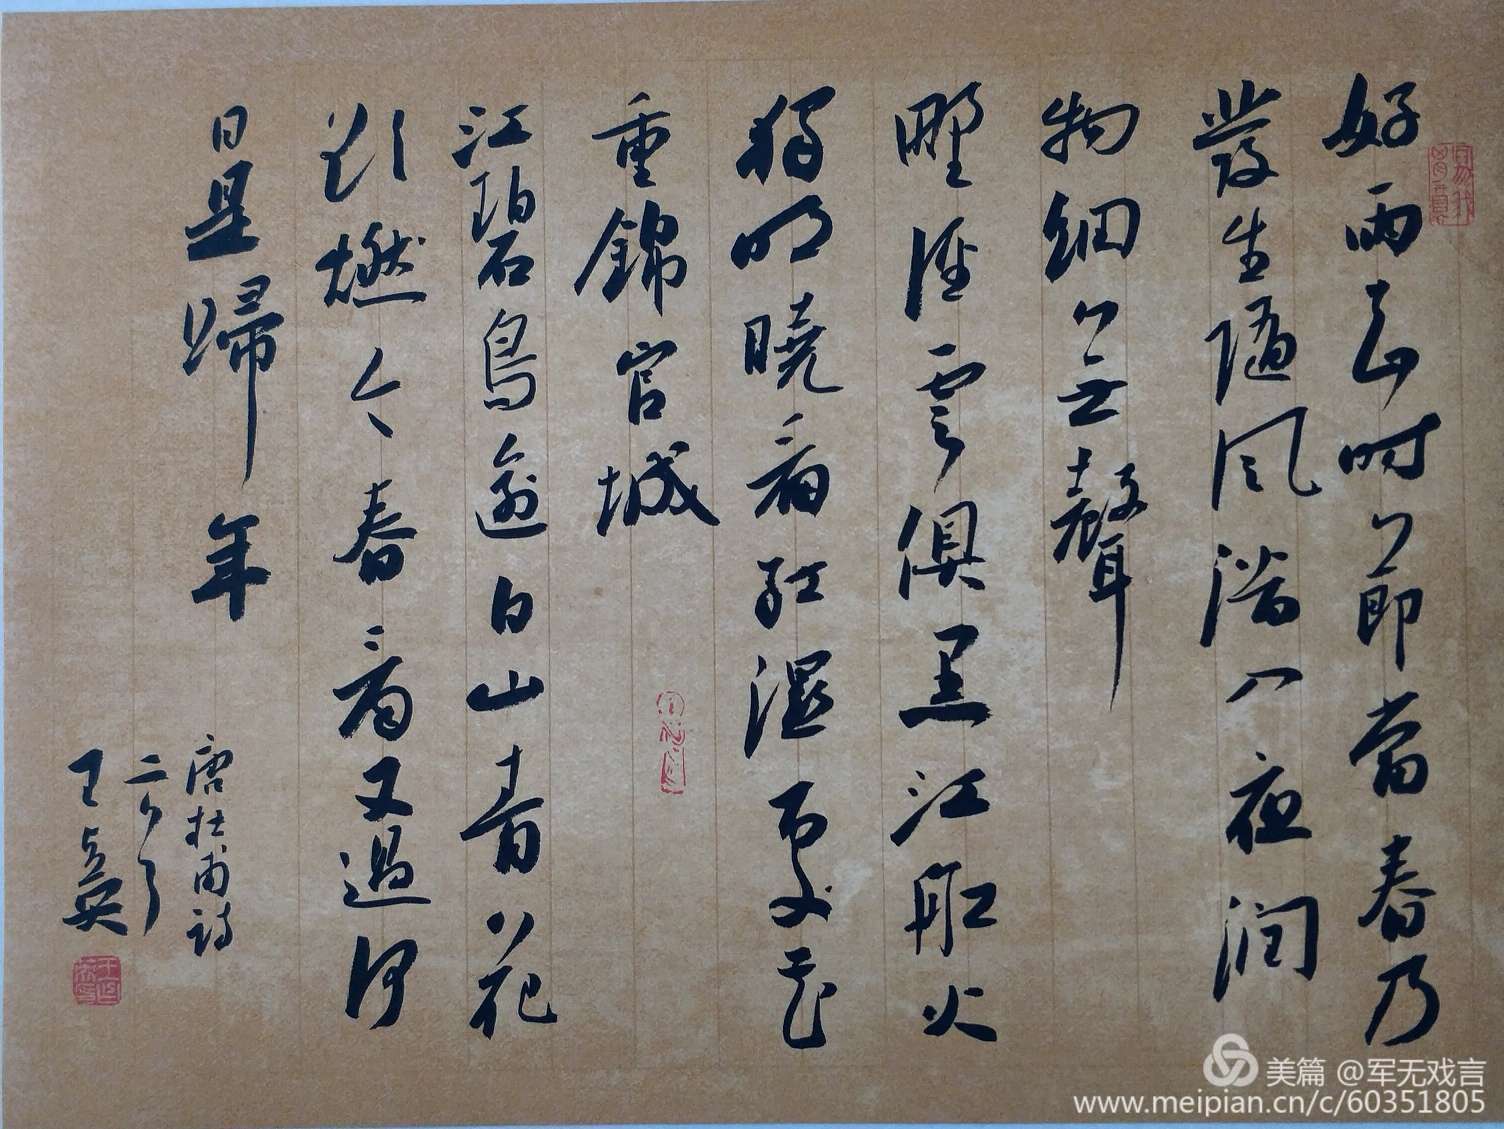 好雨知时節當春乃
發生隨風潛入夜潤
物細無聲
野徑雲俱黑江船火
獨明曉看紅濕處花
重錦官城
江碧鳥逾白山青花
欲燃今春看又過何
日是歸年
唐杜甫詩
美篇 @军无戏言
www.meipian.cn/c/60351805